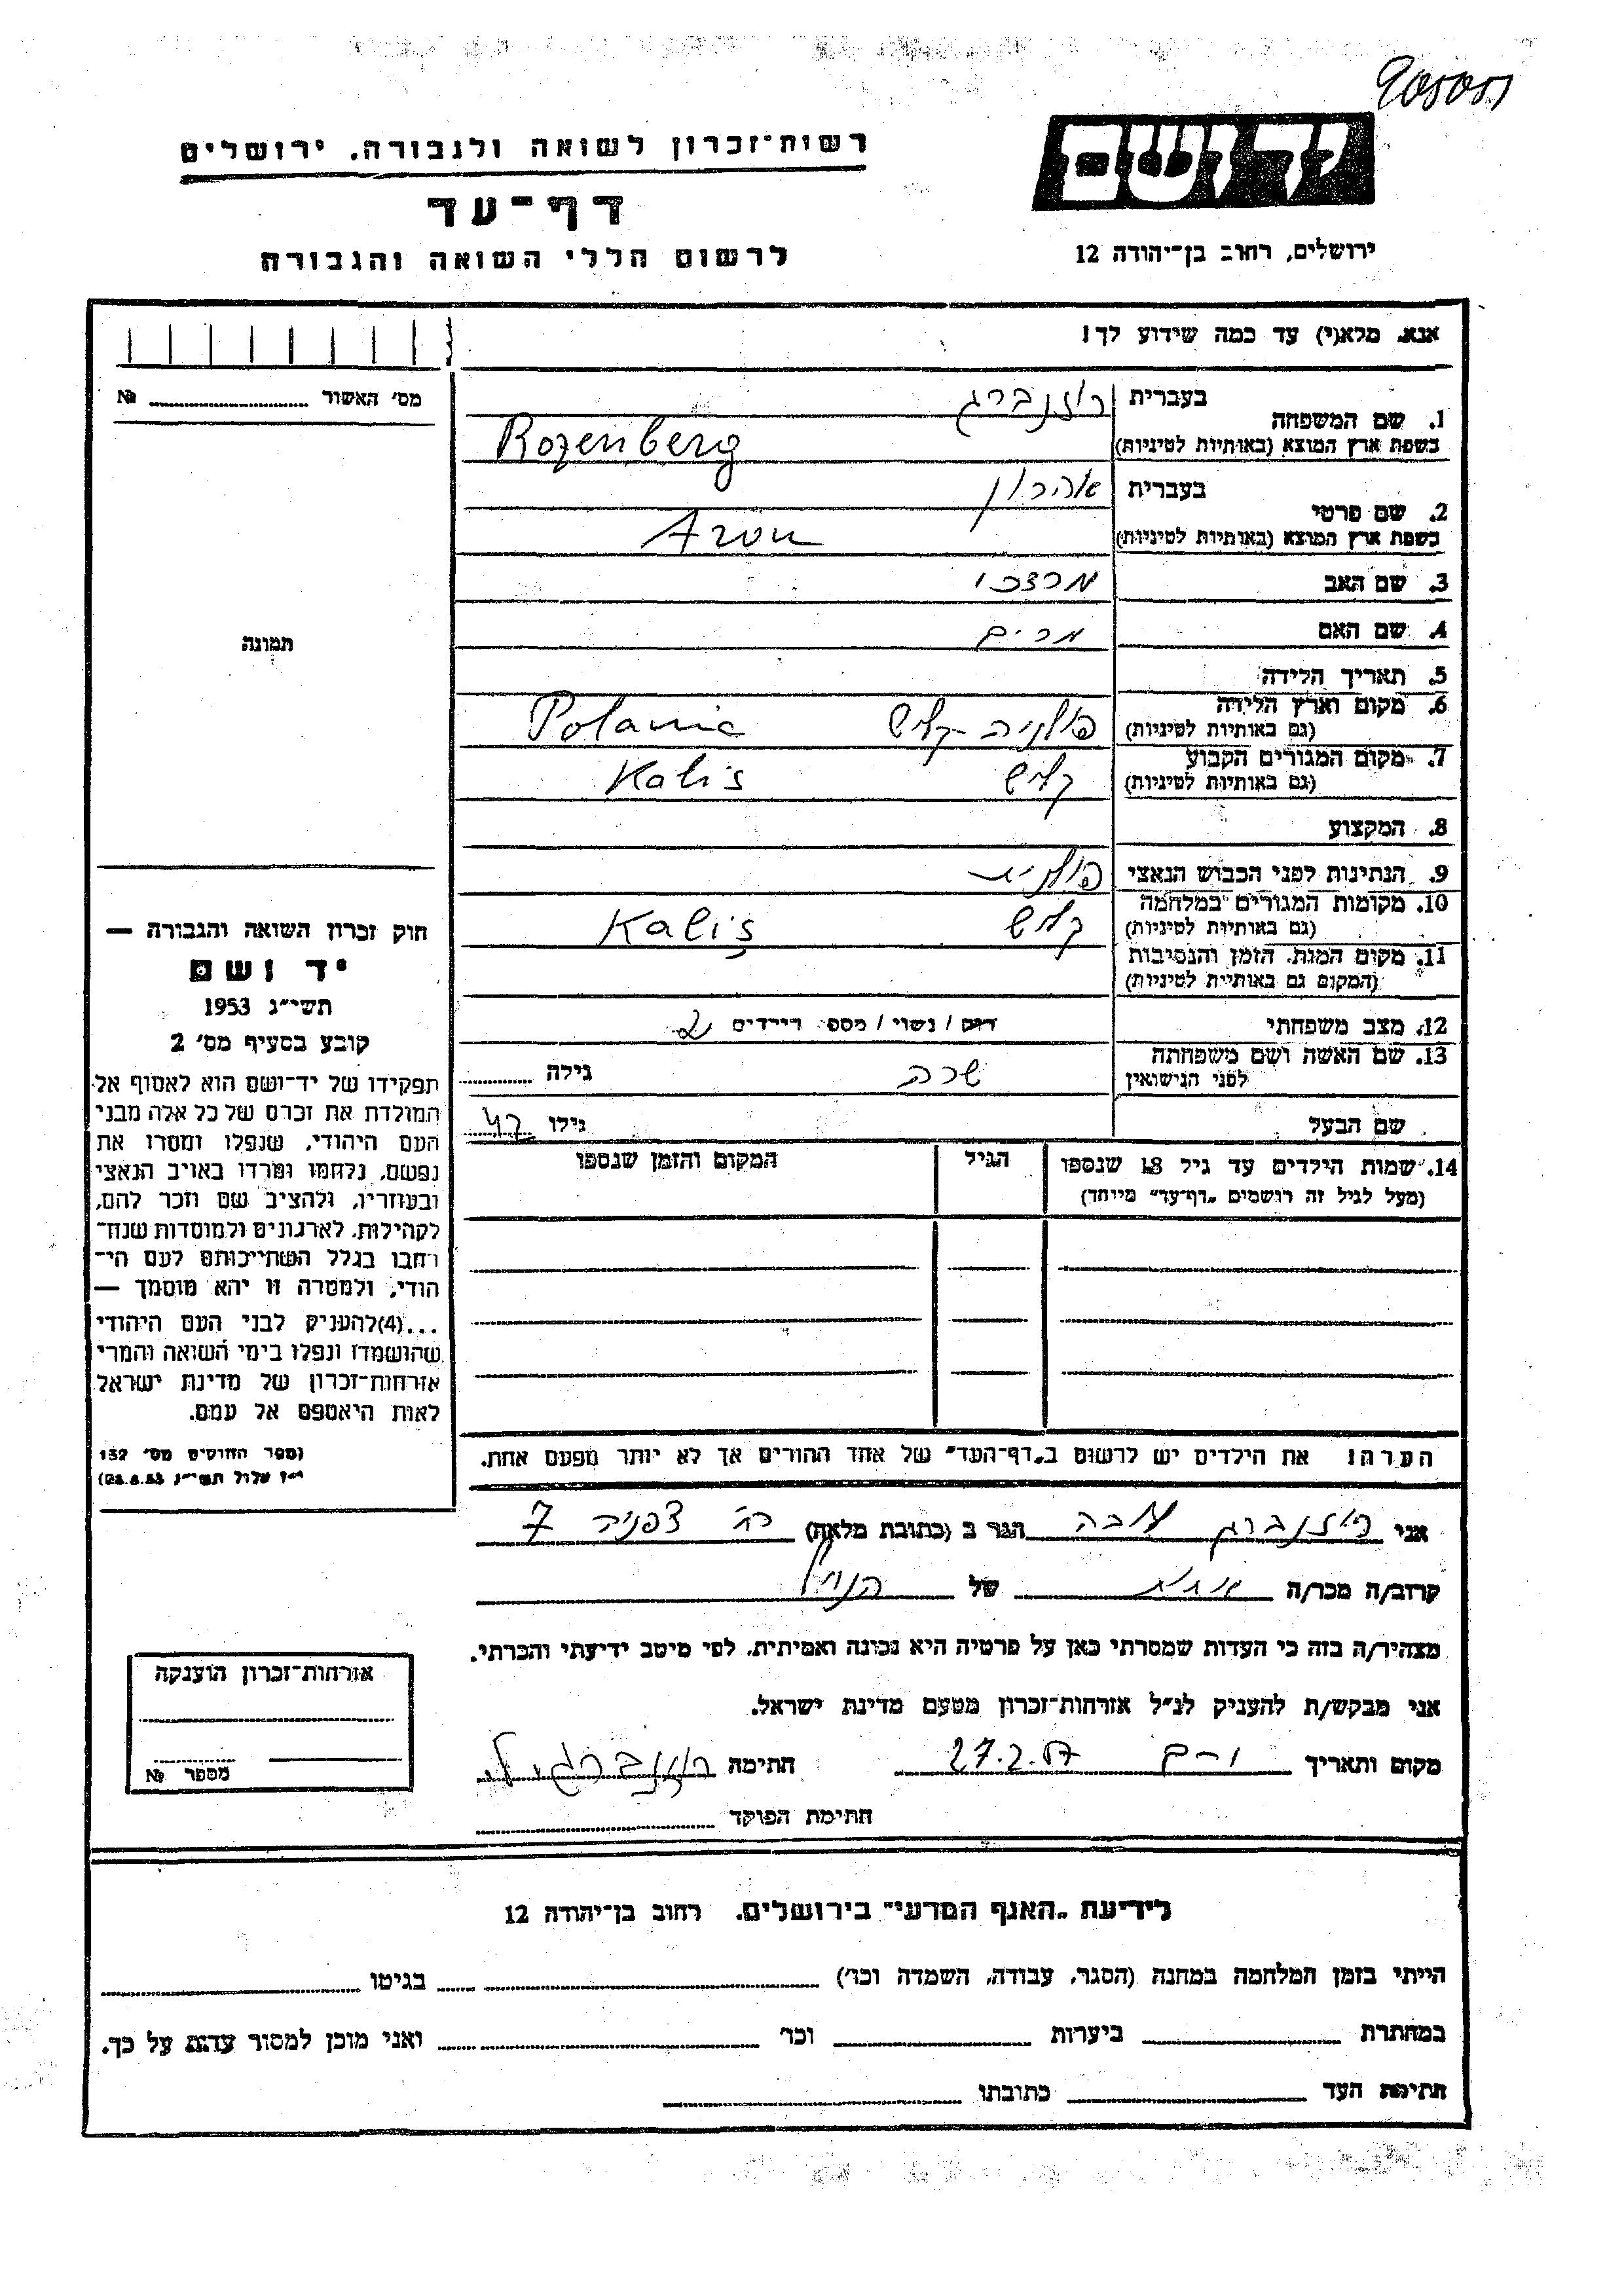 רשות־זכרון לשואה ולגבורה, ירושלים
דף־עד
לרשום חללי השואה והגבורה
יד ושם
ירושלים, רחוב בן־יהודה 12
אנא, מלא(י) עד כמה שידוע לך!
מס' האשור № 
בעברית רוזנברג
1. שם המשפחה
בשפת ארץ המוצא (באותיות לטיניות) Rozenberg
בעברית אהרון
2. שם פרטי
בשפת ארץ המוצא (באותיות לטיניות) Aron
3. שם האב מרדכי
4. שם האם מרים
5. תאריך הלידה
6. מקום וארץ הלידה פולניה קליש Polania
(גם באותיות לטיניות)
7. מקום המגורים הקבוע קליש Kalis
(גם באותיות לטיניות)
8. המקצוע
9. הנתינות לפני הכבוש הנאצי פולנית
10. מקומות המגורים במלחמה קליש Kalis
(גם באותיות לטיניות)
11. מקום המות, הזמן והנסיבות
(המקום גם באותיות לטיניות)
12. מצב משפחתי רווק / נשוי / מספר הילדים 2
13. שם האשה ושם משפחתה שרה גילה
לפני הנישואין
שם הבעל גילו 47
14. שמות הילדים עד גיל 18 שנספו הגיל המקום והזמן שנספו
(מעל לגיל זה רושמים "דף־עד" מיוחד)
הערה: את הילדים יש לרשום ב"דף־העד" של אחד ההורים אך לא יותר מפעם אחת.
תמונה
חוק זכרון השואה והגבורה —
יד ושם
תשי"ג 1953
קובע בסעיף מס' 2
תפקידו של יד־ושם הוא לאסוף אל
המולדת את זכרם של כל אלה מבני
העם היהודי, שנפלו ומסרו את
נפשם, נלחמו ומרדו באויב הנאצי
ובעוזריו, ולהציב שם וזכר להם,
לקהילות, לארגונים ולמוסדות שנח־
רחבו בגלל השתייכותם לעם הי־
הודי, ולמטרה זו יהא מוסמך —
...(4)להעניק לבני העם היהודי
שהושמדו ונפלו בימי השואה והמרי
אזרחות־זכרון של מדינת ישראל
לאות היאספם אל עמם.
(ספר החוקים מס' 132
י"ז אלול תשי"ג 28.8.53)
אני רוזנברג הגר ב (כתובת מלאה) רח' צפניה 7
קרוב/ה מכר/ה של הנ"ל
מצהיר/ה בזה כי העדות שמסרתי כאן על פרטיה היא נכונה ואמיתית, לפי מיטב ידיעתי והכרתי.
אני מבקש/ת להעניק לנ"ל אזרחות־זכרון מטעם מדינת ישראל.
מקום ותאריך 27.2.57 חתימה
חתימת הפוקד
אזרחות־זכרון הוענקה
מספר №
לידיעת "האגף המדעי" בירושלים, רחוב בן־יהודה 12
הייתי בזמן המלחמה במחנה (הסגר, עבודה, השמדה וכו') בגיטו
במחתרת ביערות וכו' ואני מוכן למסור עדות על כך.
חתימת העד כתובתו